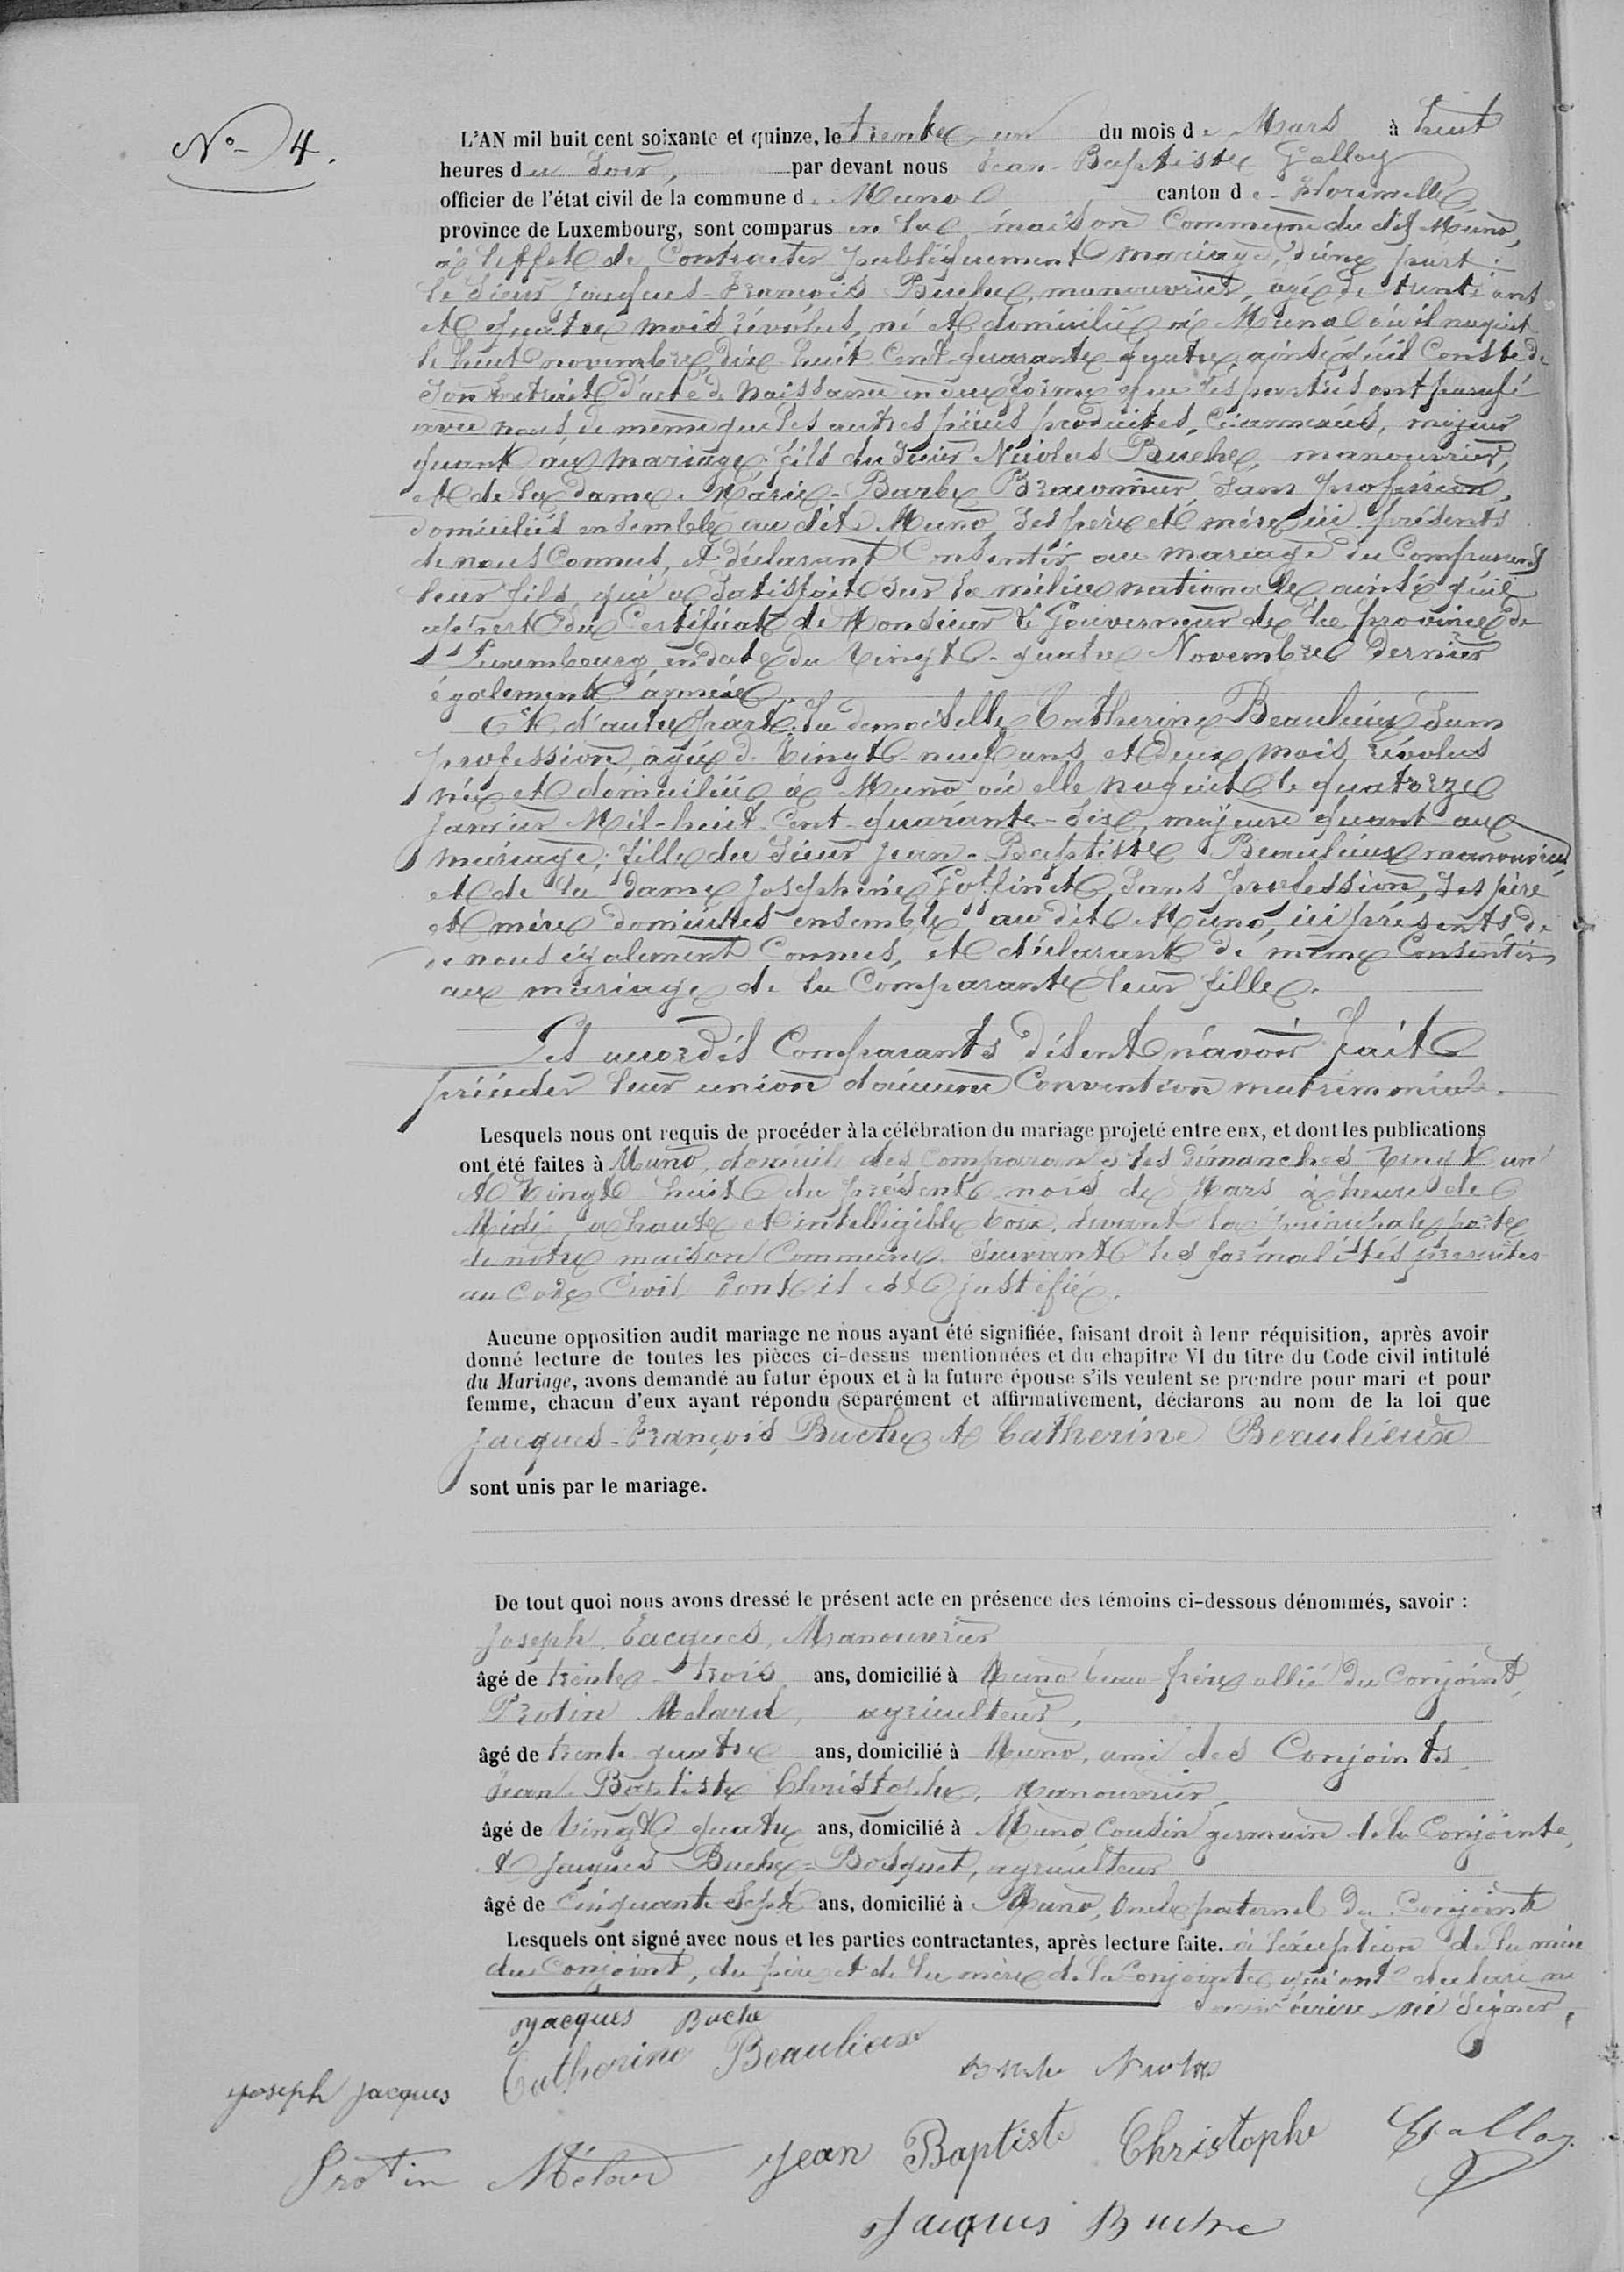 N° 4.
L'AN mil huit cent soixante et quinze, le trente-un du mois de Mars à huit
heures du Soir, par devant nous Jean-Baptiste Galloy
officier de l'état civil de la commune de Muno canton de Florenville
province de Luxembourg, sont comparus en la maison Commune du dit Muno,
à l'effet de Contracter publiquement mariage, d'une part :
le Sieur Jacques-François Buche, manouvrier, agé de trente ans
et quatre mois révolus, né et domicilié à Muno où il naquit
le huit novembre dix-huit Cent quarante quatre, ainsi qu'il Conste de
Son Extrait d'acte de Naissance en due forme que les parties ont paraphé
avec nous, de même que les autres pièces produites, ci-annexées, majeur
quant au mariage, fils du Sieur Nicolas Buche, manouvrier,
et de la dame Marie-Barbe Braconnier, Sans profession,
domiciliés ensemble au dit Muno, Ses père et mère ici présents
de nous Connus, et déclarant Consentir au mariage du Comparant
leur fils, qui a Satisfait Sur la milice nationale ainsi qu'il
appert du Certificat de Monsieur le Gouverneur de la province de
Luxembourg, en date du Vingt-quatre Novembre dernier
également annexé.
Et d'autre part : la demoiselle Catherine Beaulieux Sans
profession, agée de Vingt-neuf ans et deux mois révolus
née et domiciliée à Muno où elle naquit le quatorze
janvier Mil-huit-Cent-quarante-Six, majeure quant au
mariage, fille du Sieur Jean-Baptiste Beaulieux manouvrier,
et de la dame Josephine Goffinet, Sans profession, Ses père
et mère domiciliés ensemble au dit Muno, ici présents, de
de nous également Connus, et déclarant de même Consentir
au mariage de la Comparante leur fille.
Les accordés Comparants disent n'avoir fait
précéder leur union d'aucune Convention matrimoniale.
Lesquels nous ont requis de procéder à la célébration du mariage projeté entre eux, et dont les publications
ont été faites à Muno, domicile des Comparants les dimanches Vingt un
et Vingt huit du présent mois de Mars à heure de
Midi, à haute et intelligible voix, devant la principale porte
de notre maison Commune Suivant les formalités prescrites
au Code Civil dont il est justifié.
Aucune opposition audit mariage ne nous ayant été signifiée, faisant droit à leur réquisition, après avoir
donné lecture de toutes les pièces ci-dessus mentionnées et du chapitre VI du titre du Code civil intitulé
du Mariage, avons demandé au futur époux et à la future épouse s'ils veulent se prendre pour mari et pour
femme, chacun d'eux ayant répondu séparément et affirmativement, déclarons au nom de la loi que
Jacques-François Buche et Catherine Beaulieux
sont unis par le mariage.
De tout quoi nous avons dressé le présent acte en présence des témoins ci-dessous dénommés, savoir :
Joseph Jacques, Manouvrier
âgé de trente-trois ans, domicilié à Muno beau-frère allié du Conjoint,
Protin Melard, agriculteur,
âgé de trente quatre ans, domicilié à Muno, ami des Conjoints,
Jean Baptiste Christophe, Manouvrier,
âgé de Vingt quatre ans, domicilié à Muno Cousin germain de la Conjointe,
et Jacques Buche-Bosquet, agriculteur
âgé de Cinquante Sept ans, domicilié à Muno, Oncle paternel du Conjoint
Lesquels ont signé avec nous et les parties contractantes, après lecture faite. à l'exception de la mère
du Conjoint, du père et de la mère de la Conjointe qui ont déclaré ne
Savoir écrire ni Signer.
Jacques Buche
Catherine Beaulieux
Buche Nicolas
Joseph Jacques
Protin Mélard
Jean Baptiste Christophe
Galloy
Jacques Buche